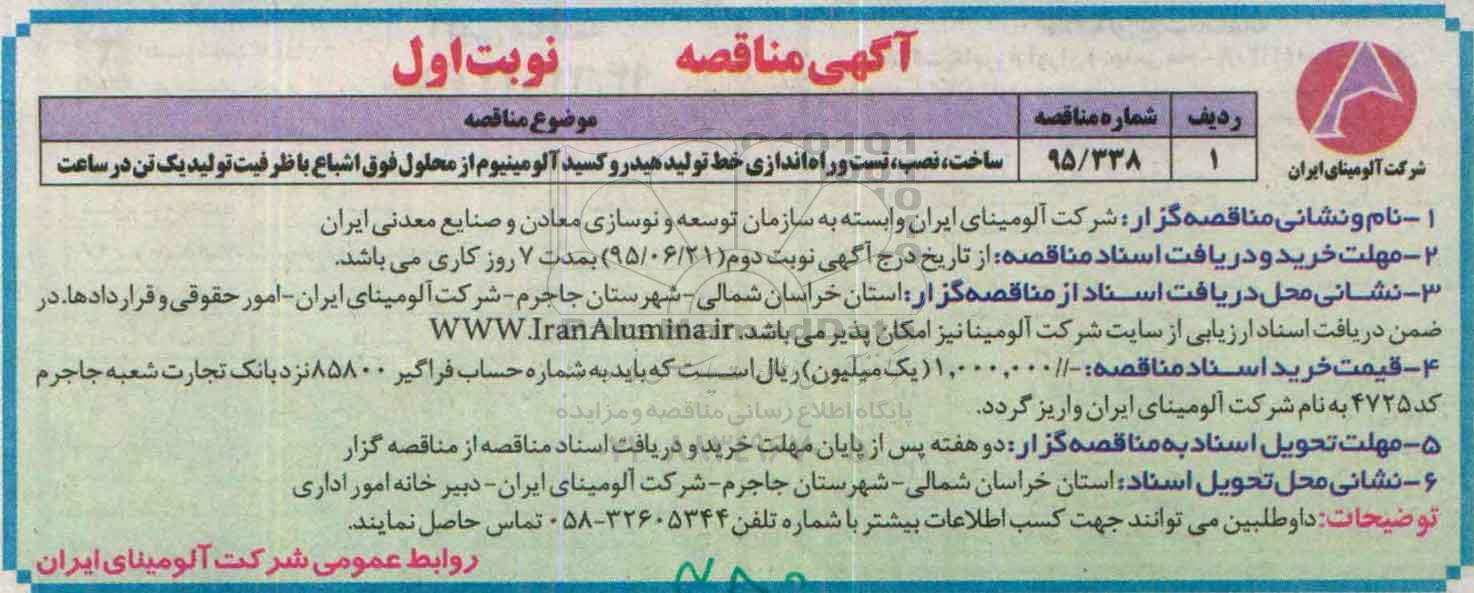 آگهی مناقصه نوبت اول
شرکت آلومینای ایران
ردیف شماره مناقصه موضوع مناقصه
۱ ۹۵/۳۳۸ ساخت، نصب، تست و راه اندازی خط تولید هیدروکسید آلومینیوم از محلول فوق اشباع با ظرفیت تولید یک تن در ساعت
۱-نام و نشانی مناقصه گزار: شرکت آلومینای ایران وابسته به سازمان توسعه و نوسازی معادن و صنایع معدنی ایران
۲-مهلت خرید و دریافت اسناد مناقصه: از تاریخ درج آگهی نوبت دوم (۹۵/۰۶/۲۱) بمدت ۷ روز کاری می باشد.
۳-نشانی محل دریافت اسناد از مناقصه گزار: استان خراسان شمالی-شهرستان جاجرم-شرکت آلومینای ایران-امور حقوقی و قراردادها. در
ضمن دریافت اسناد ارزیابی از سایت شرکت آلومینا نیز امکان پذیر می باشد. WWW.IranAlumina.ir
۴-قیمت خرید اسناد مناقصه: -//۱,۰۰۰,۰۰۰ (یک میلیون) ریال است که باید به شماره حساب فراگیر ۸۵۸۰۰ نزد بانک تجارت شعبه جاجرم
کد ۴۷۲۵ به نام شرکت آلومینای ایران واریز گردد.
پایگاه اطلاع رسانی مناقصه و مزایده
۵-مهلت تحویل اسناد به مناقصه گزار: دو هفته پس از پایان مهلت خرید و دریافت اسناد مناقصه از مناقصه گزار
۶-نشانی محل تحویل اسناد: استان خراسان شمالی-شهرستان جاجرم-شرکت آلومینای ایران-دبیر خانه امور اداری
توضیحات: داوطلبین می توانند جهت کسب اطلاعات بیشتر با شماره تلفن ۳۲۶۰۵۳۴۴-۰۵۸ تماس حاصل نمایند.
روابط عمومی شرکت آلومینای ایران